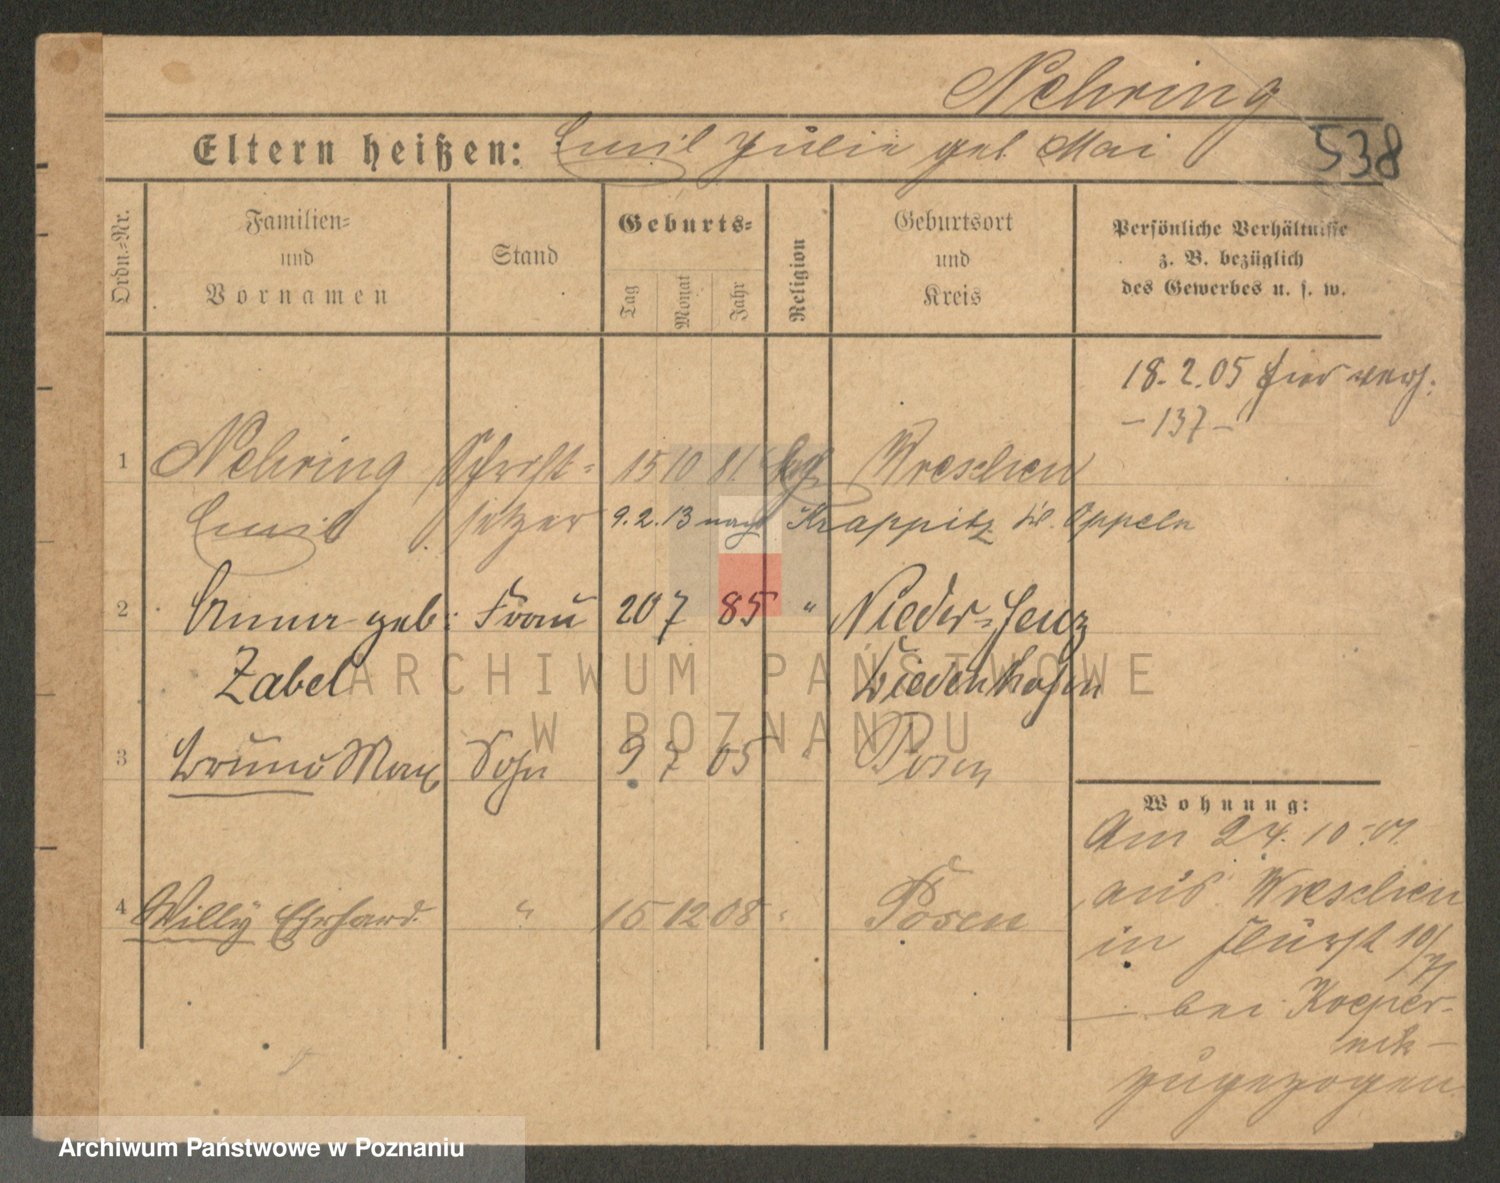 Nehring
Eltern heißen: Emil Julie geb. Mai
538
Ordn.=Nr.
Familien=
und
Vornamen
Stand
Geburts=
Tag
Monat
Jahr
Religion
Geburtsort
und
Kreis
Persönliche Verhältnisse
z. B. bezüglich
des Gewerbes u. s. w.
18. 2. 05 hier
- 137 -
1 Nehring Schrift= 15 10 81 Wreschen
Emil setzer 9. 2. 13 nach Krappitz Kr. Oppeln
2 Anna geb: Frau 20 7 85 " Nieder=
Zabel
ARCHIWUM PAŃSTWOWE
W POZNANIU
3 Bruno Max Sohn 9 7 05 " Posen
Wohnung:
Am 24. 10. 01.
4 Willy Ehrhard. " 15 12 08 " Posen
aus Wreschen
in
bei
zugezogen
Archiwum Państwowe w Poznaniu